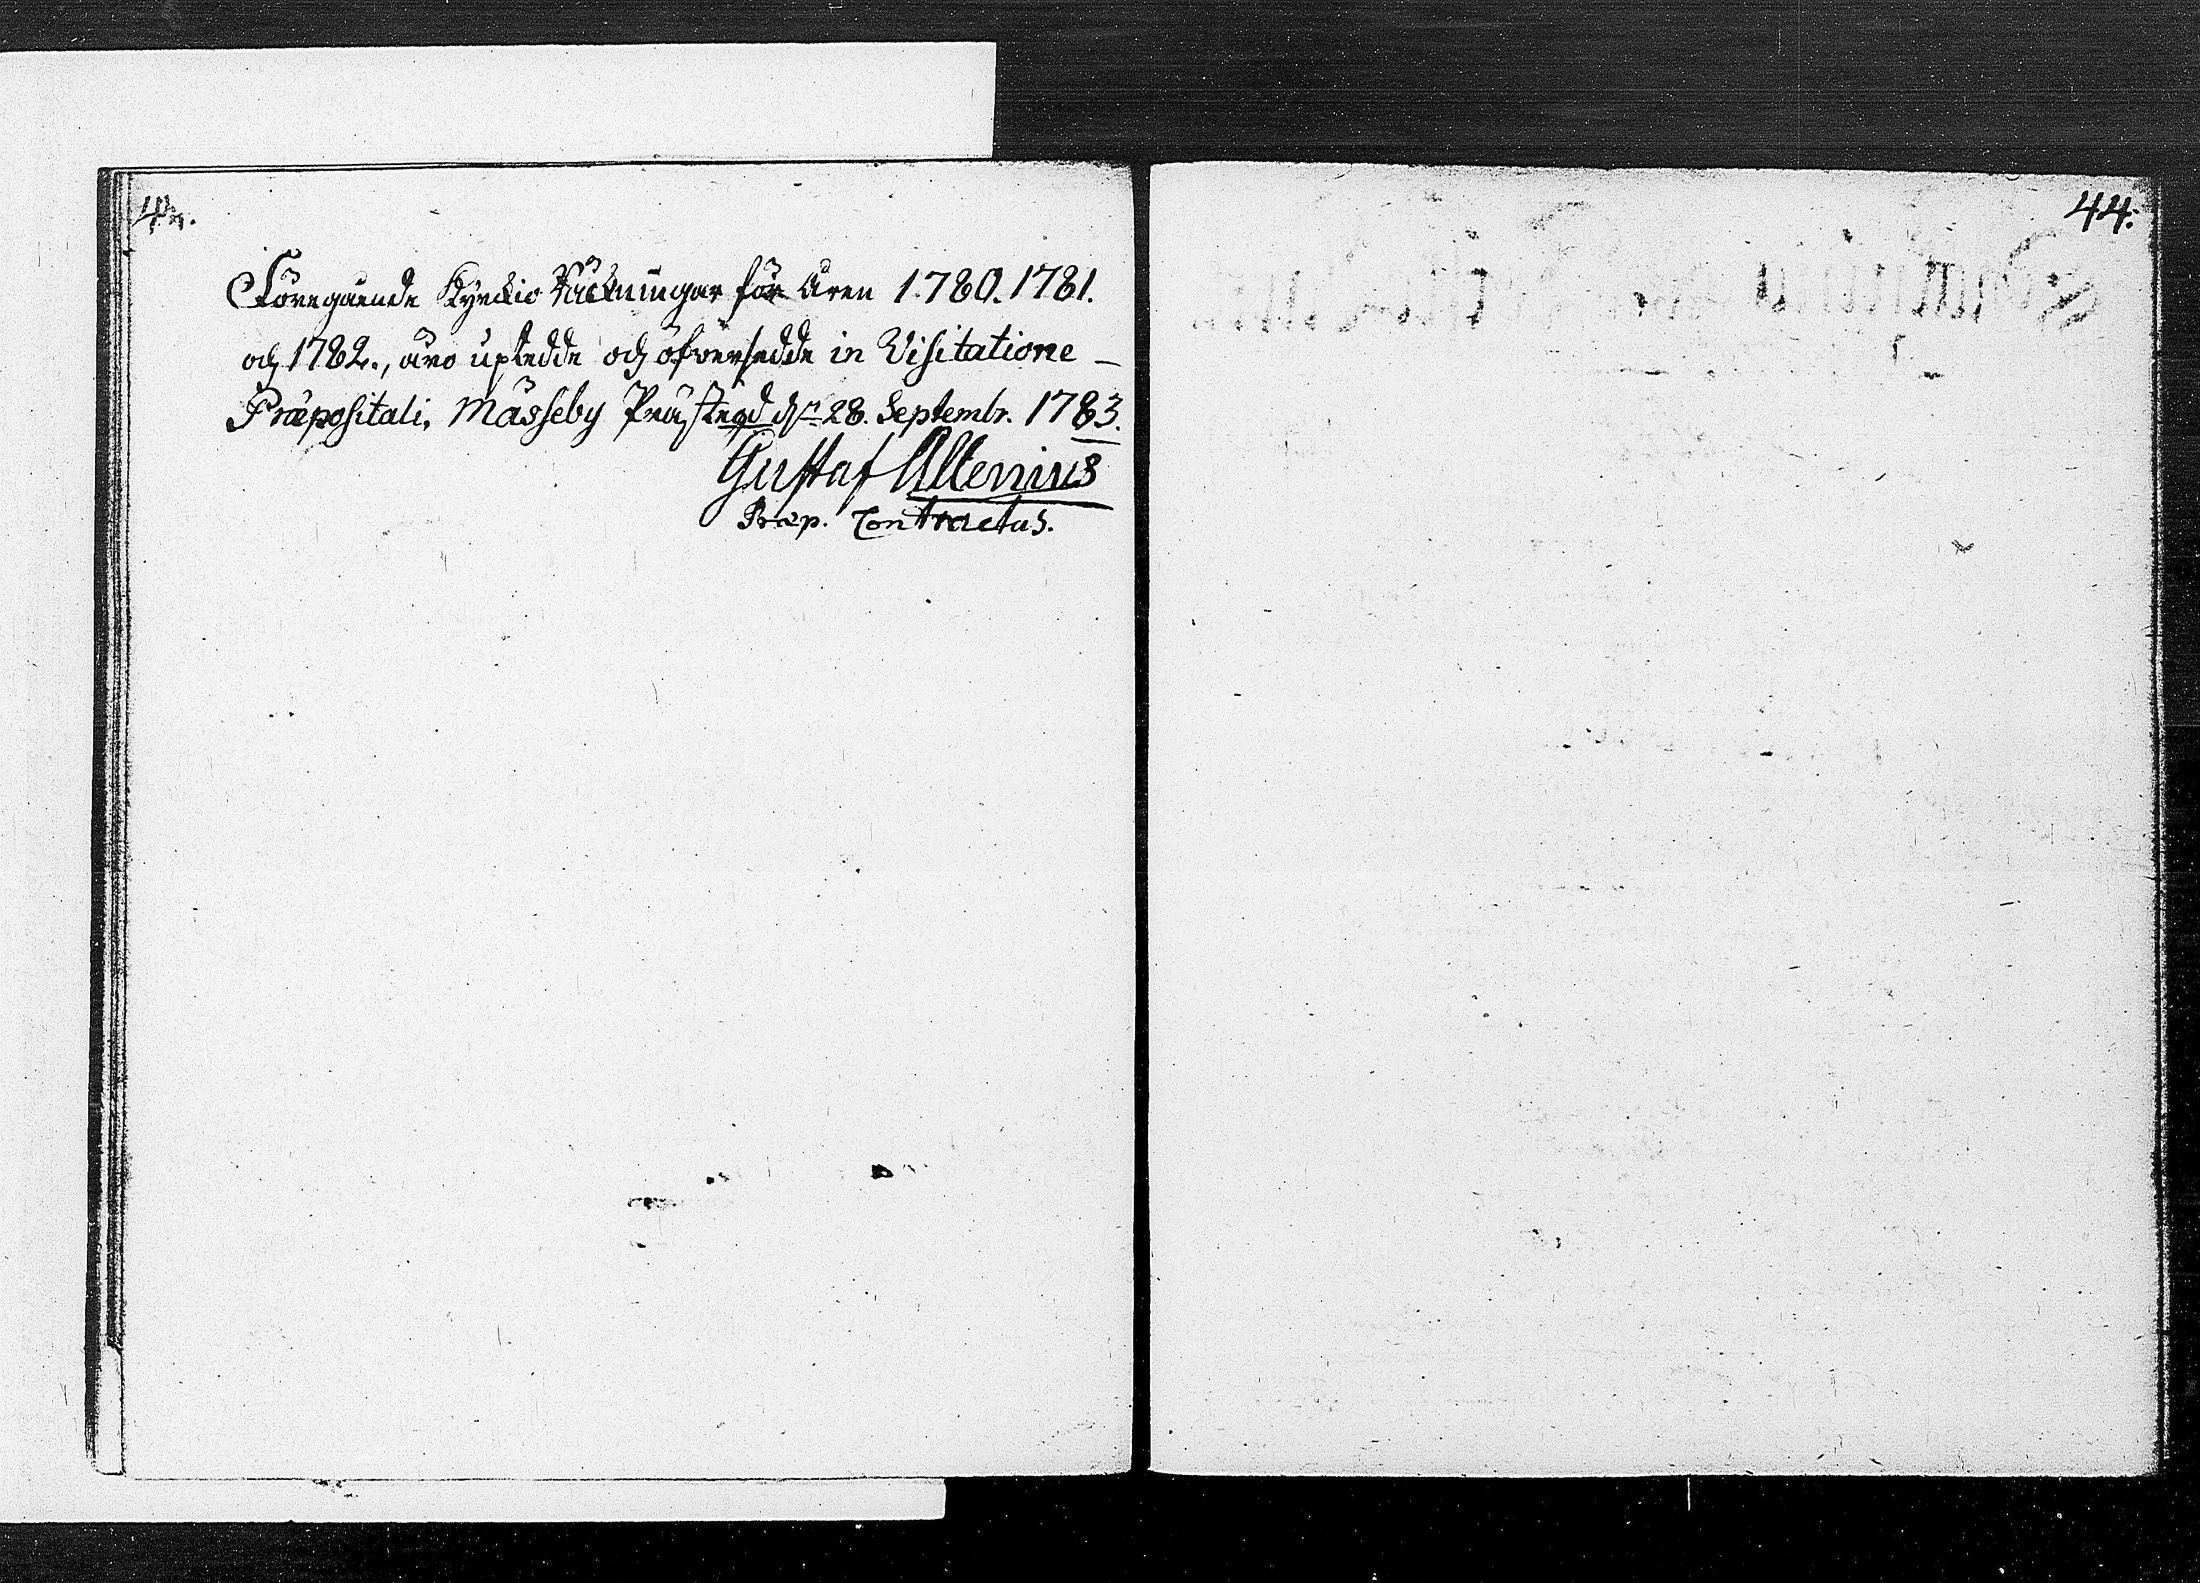 Föregående Kyrckio Räckningar för Åren 1780. 1781.
och 1782., äro uptedde och öfversedde in Visitatione
Præpositali, Mässeby Prästegd dn 28. Septembr. 1783.
Gustaf Allenius
Præp. Contractus.
44.